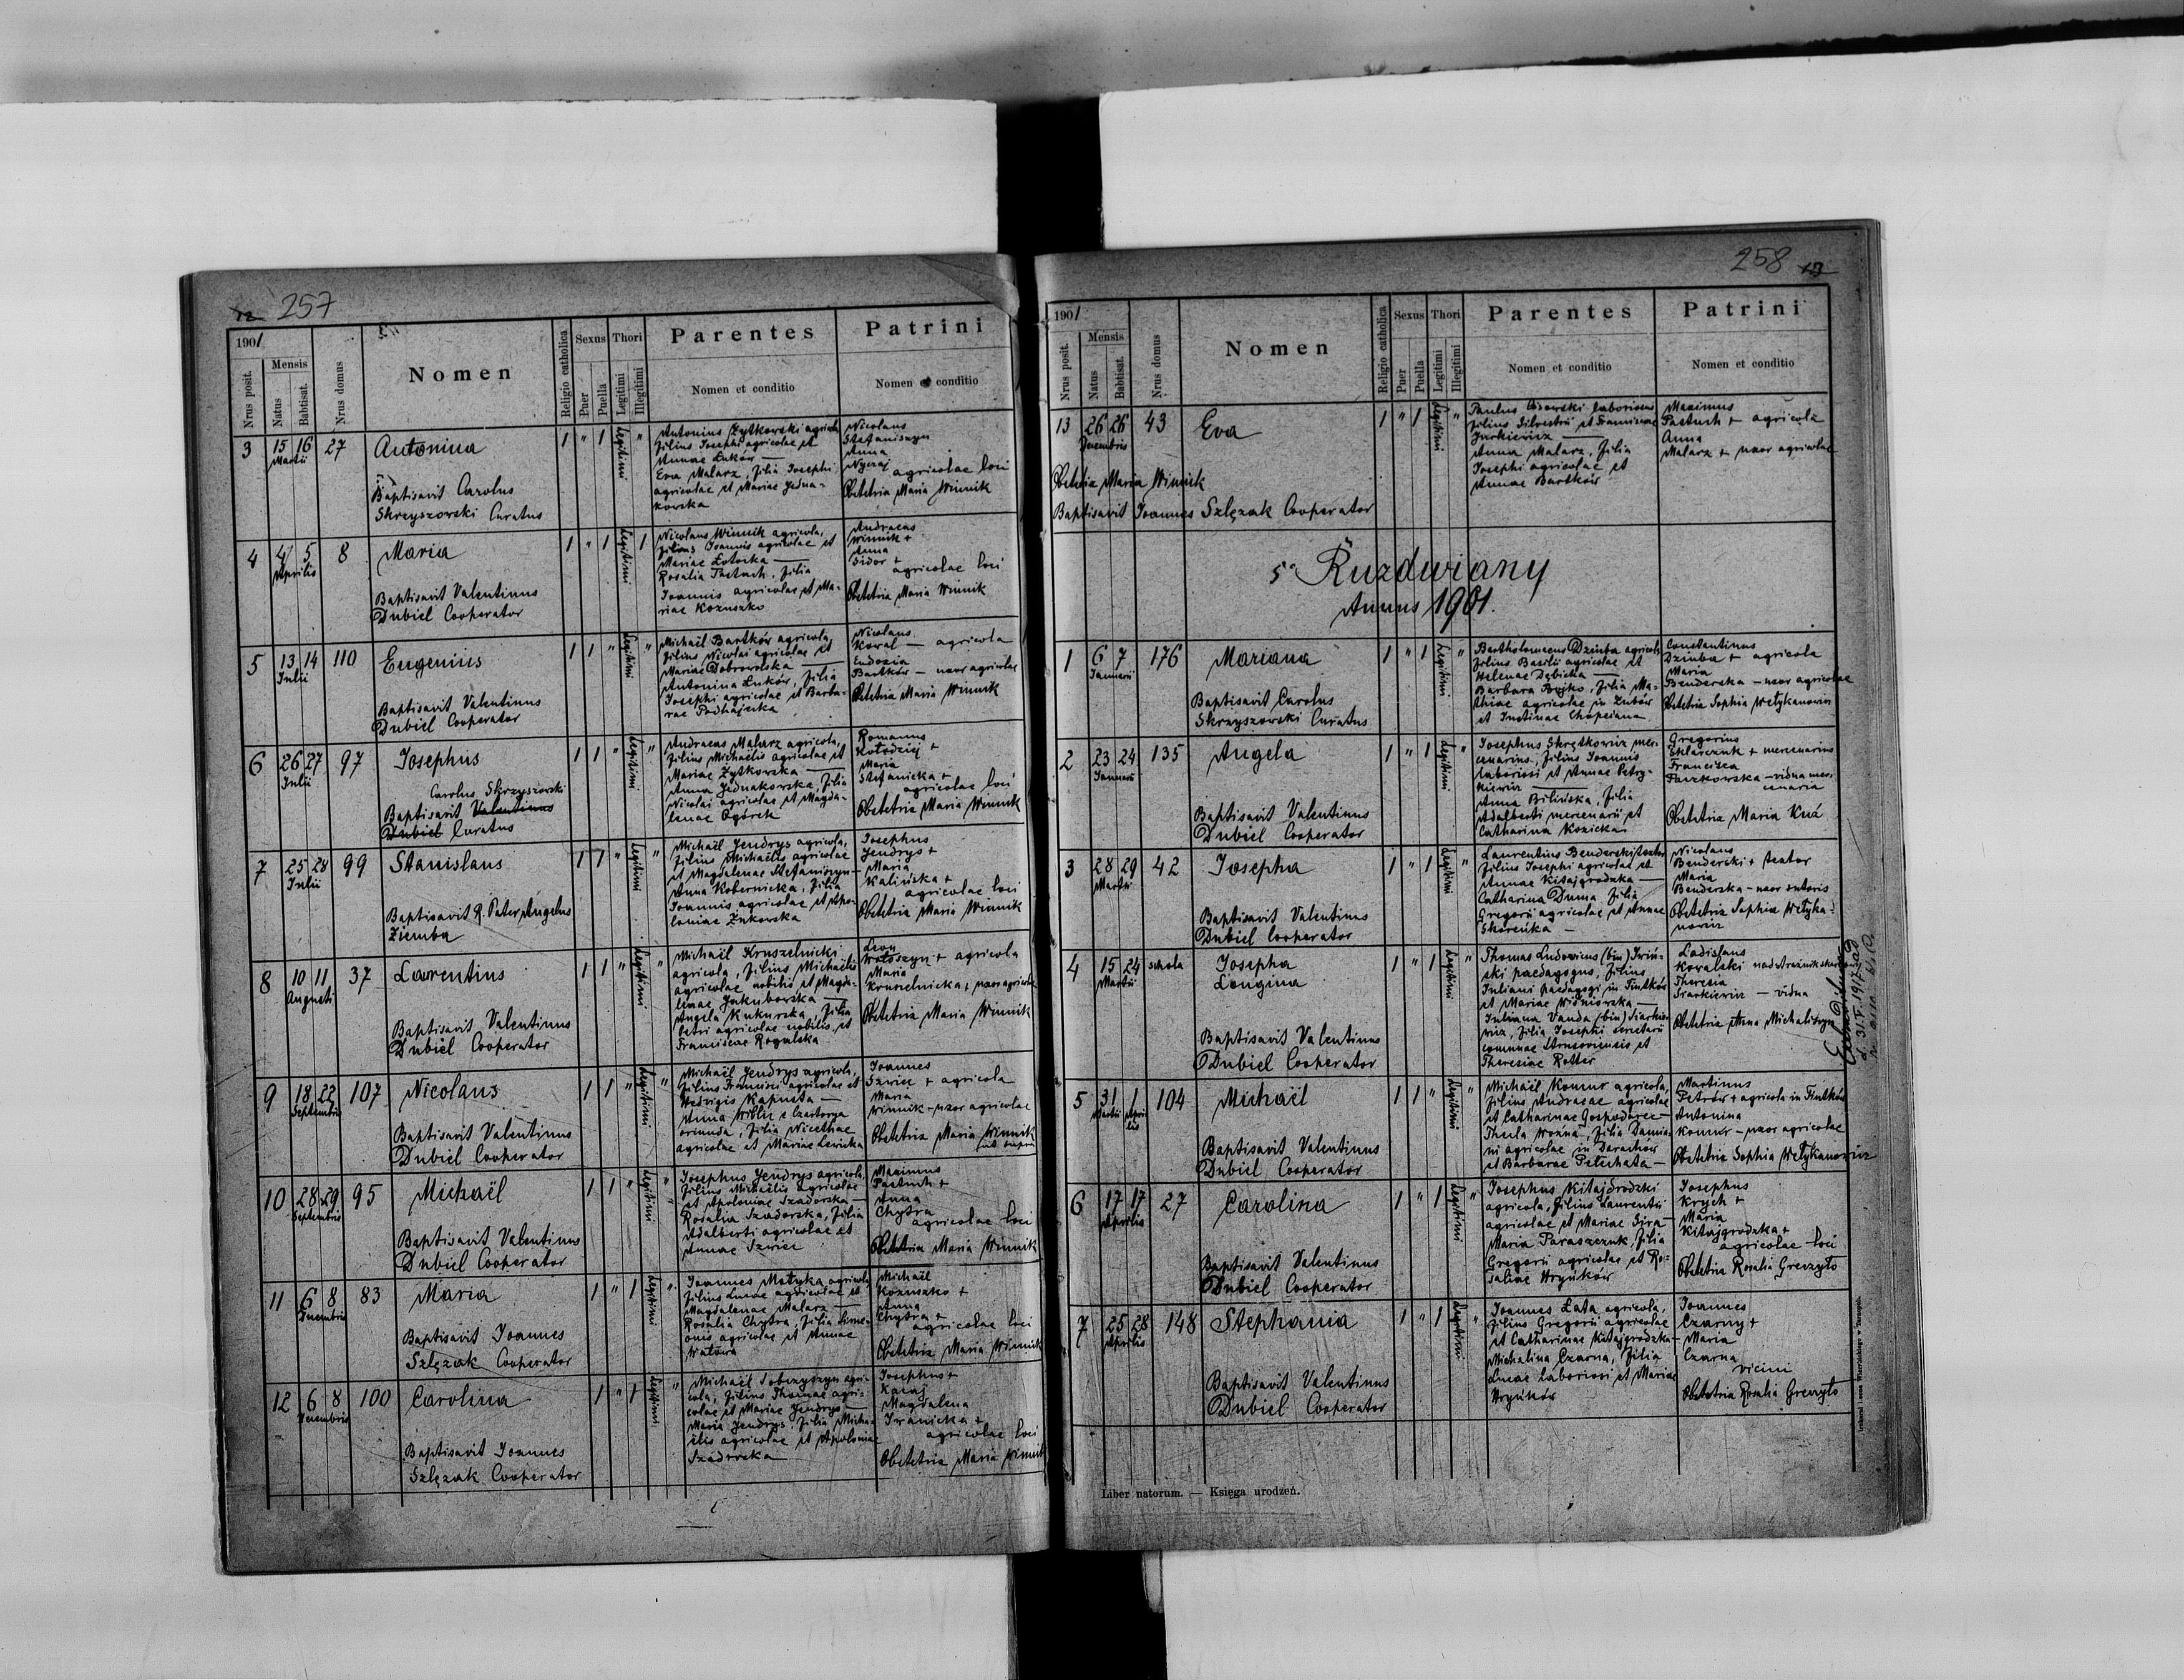 12 257
1901
Nrus posit.
Mensis
Natus
Babtisat.
Nrus domus
Nomen
Religio catholica
Sexus
Puer
Puella
Thori
Legitimi
Illegitimi
Parentes
Nomen et conditio
Patrini
Nomen et conditio
3 15 16 27 Antonina 1 " 1 Legitimi "
Martii
Baptisavit Carolus
Skrzyszowski Curatus
Antonius Żytkowski agricola
filius Josephi agricolae et
Annae Łuków —
Eva Malarz, filia Josephi
agricolae et Mariae Jedna-
kowska
Nicolaus
Stefaniszyn
Anna
agricolae loci
Obstetrix Maria Winnik
4 4 5 8 Maria 1 " 1 Legitimi 1
Aprilis
Baptisavit Valentinus
Dubiel Cooperator
Nicolaus Winnik agricola,
filius Joannis agricolae et
Mariae
Rosalia Pastuch, filia
Joannis agricolae et Ma-
riae Kożuszko
Andreas
Winnik +
Anna
Sidor +
agricolae loci
Obstetrix Maria Winnik
5 13 14 110 Eugenius 1 1 " Legitimi "
Julii
Baptisavit Valentinus
Dubiel Cooperator
Michaël Bartków agricola,
filius Nicolai agricolae et
Mariae Dobrowolska —
Antonina Łuków, filia
Josephi agricolae et Barba-
rae Podhajecka
Nicolaus
Kowal — agricola
Eudoxia
Bartków — uxor agricolae
Obstetrix Maria Winnik
6 26 27 97 Josephus 1 1 " Legitimi "
Julii
Carolus Skrzyszowski
Baptisavit Valentinus
Dubiel Curatus
Andreas Malarz agricola,
filius Michaëlis agricolae et
Mariae Żytkowska —
Anna Jednakowska, filia
Nicolai agricolae et Magda-
lenae Ogórek
Romanus
Kołodziej +
Maria
Stefanicka +
agricolae loci
Obstetrix Maria Winnik
7 25 28 99 Stanislaus 1 1 " Legitimi "
Julii
Baptisavit R. Pater Angelus
Ziemba
Michaël Jendrys agricola,
filius Michaëlis agricolae
et Magdalenae Stefaniszyn —
Anna Kobernicka, filia
Joannis agricolae et Apo-
loniae Żukowska
Josephus
Jendrys +
Maria
Kalińska +
agricolae loci
Obstetrix Maria Winnik
8 10 11 37 Laurentius 1 1 " Legitimi "
Augusti
Baptisavit Valentinus
Dubiel Cooperator
Michaël Kruszelnicki
agricola, filius Michaëlis
agricolae nobilis et Magda-
lenae Jakubowska —
Angela Kukurska, filia
Petri agricolae nobilis et
Franciscae Rogalska
Leon
Wołoszyn + agricola
Maria
Kruszelnicka + uxor agricolae
Obstetrix Maria Winnik
9 18 22 107 Nicolaus 1 1 " Legitimi "
Septembris
Baptisavit Valentinus
Dubiel Cooperator
Michaël Jendrys agricola,
filius Francisci agricolae et
Hedvigis Kapusta —
Anna
oriunda, filia Nicethae
agricolae et Mariae Lewicka
Joannes
Szwiec + agricola
Maria
Winnik - uxor agricolae
Obstetrix Maria Winnik
ut supra
10 28 29 95 Michaël 1 1 " Legitimi "
Septembris
Baptisavit Valentinus
Dubiel Cooperator
Josephus Jendrys agricola,
filius Michaëlis agricolae
et Apoloniae Szadorska —
Rosalia Szadorska, filia
Adalberti agricolae et
Annae Szwiec
Maximus
Pastuch +
Anna
Chytra
agricolae loci
Obstetrix Maria Winnik
11 6 8 83 Maria 1 " 1 Legitimi "
Decembris
Baptisavit Joannes
Szlęzak Cooperator
Joannes Matyka agricola
filius Lucae agricolae et
Magdalenae Malarz —
Rosalia Chytra, filia Sime-
onis agricolae et Annae
Michaël
Kożuszko +
Anna
Chytra +
agricolae loci
Obstetrix Maria Winnik
12 6 8 100 Carolina 1 " 1 Legitimi "
Decembris
Baptisavit Joannes
Szlęzak Cooperator
Michaël Sobczyszyn agri-
cola, filius Thomae agri-
colae et Mariae Jendrys —
Maria Jendrys, filia Micha-
ëlis agricolae et Apoloniae
Szadorska
Josephus +
Karaj
Magdalena
Iwanicka +
agricolae loci
Obstetrix Maria Winnik
258 13
1901
Nrus posit.
Mensis
Natus
Babtisat.
Nrus domus
Nomen
Religio catholica
Sexus
Puer
Puella
Thori
Legitimi
Illegitimi
Parentes
Nomen et conditio
Patrini
Nomen et conditio
13 26 26 43 Eva 1 " 1 Legitimi "
Decembris
Obstetrix Maria Winnik
Baptisavit Joannes Szlęzak Cooperator
Paulus
filius Silvestri et Franciscae
Jurkiewicz —
Anna Malarz, filia
Josephi agricolae et
Annae Bartków
Maximus
Pastuch + agricola
Anna
Malarz + uxor agricolae
5. Ruzdwiany
Annus 1901.
1 6 7 176 Mariana 1 " 1 Legitimi "
Januarii
Baptisavit Carolus
Skrzyszowski Curatus
Bartholomaeus Dziuba agricola
filius Basilii agricolae et
Helenae Dębicka —
Barbara Bojko, filia Ma-
thiae agricolae in Zubów
et Justinae
Constantinus
Dziuba + agricola
Maria
Benderska — uxor agricolae
Obstetrix Sophia Wełykanowicz
2 23 24 135 Angela 1 " 1 Legitimi "
Januarii
Baptisavit Valentinus
Dubiel Cooperator
Josephus Skrętkowicz mer-
cenarius, filius Joannis
laboriosi et Annae Petry-
kiewicz —
Anna Bilińska, filia
Adalberti mercenarii et
Catharina Kozicka
Gregorius
Sklarczuk + mercenarius
Francisca
Paczkowska — vidua merc-
cenaria
Obstetrix Maria Kuź
3 28 29 42 Josepha 1 " 1 Legitimi "
Martii
Baptisavit Valentinus
Dubiel Cooperator
Laurentius Benderski sutor
filius Josephi agricolae et
Annae Kitajgrodzka —
Catharina Duma filia
Gregorii agricolae et Annae
Skoreńka —
Nicolaus
Benderski + sutor
Maria
Benderska - uxor sutoris
Obstetrix Sophia Wełyka-
nowicz
4 15 24 schola Josepha 1 " 1 Legitimi "
Martii
Longina
Baptisavit Valentinus
Dubiel Cooperator
Thomas Ludovicus (bin) Iwiń-
ski paedagogus, filius
Juliani paedagogi in Tiutków
et Mariae Wiśniowska —
Juliana Vanda (bin) Siarkie-
wicz, filia Josephi secretarii
communae Strusoviensis et
Theresiae Rotter
Ladislaus
Kowalski nadstrażnik skarbowy
Theresia
Siarkiewicz — vidua
Obstetrix Anna Michaliszyn
5 31 1 104 Michaël 1 1 " Legitimi "
Martii Aprilis
Baptisavit Valentinus
Dubiel Cooperator
Michaël Komur agricola,
filius Andreae agricolae
et Catharinae Gospodarec —
Thecla Woźna, filia Damia-
ni agricolae in Darachów
et Barbarae Petechata —
Martinus
Petrów + agricola in Tiutków
Antonina
Komur — uxor agricolae
Obstetrix Sophia Wełykanowicz
6 17 17 27 Carolina 1 " 1 Legitimi "
Aprilis
Baptisavit Valentinus
Dubiel Cooperator
Josephus Kitajgrodzki
agricola, filius Laurentii
agricolae et Mariae Gira —
Maria Paraszczuk, filia
Gregorii agricolae et Ro-
saliae Hryńków
Josephus
Krych +
Maria
Kitajgrodzka +
agricolae loci
Obstetrix Rosalia Greczyło
7 25 28 148 Stephania 1 " 1 Legitimi "
Aprilis
Baptisavit Valentinus
Dubiel Cooperator
Joannes Łata agricola,
filius Gregorii agricolae
et Catharinae Kitajgrodzka —
Michalina Czarna, filia
Lucae laboriosi et Mariae
Hryńków
Joannes
Czarny +
Maria
Czarna
vicini
Obstetrix Rosalia Greczyło
Liber natorum. — Księga urodzeń.